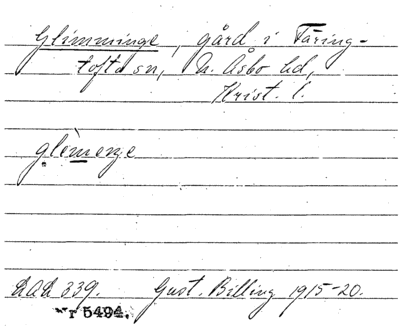 Glimminge, gård i Färing-
tofta sn, N. Åsbo hd,
Krist. l.
glèmenge
DAL 339. Gust. Billing 1915-20.
nr 5494.